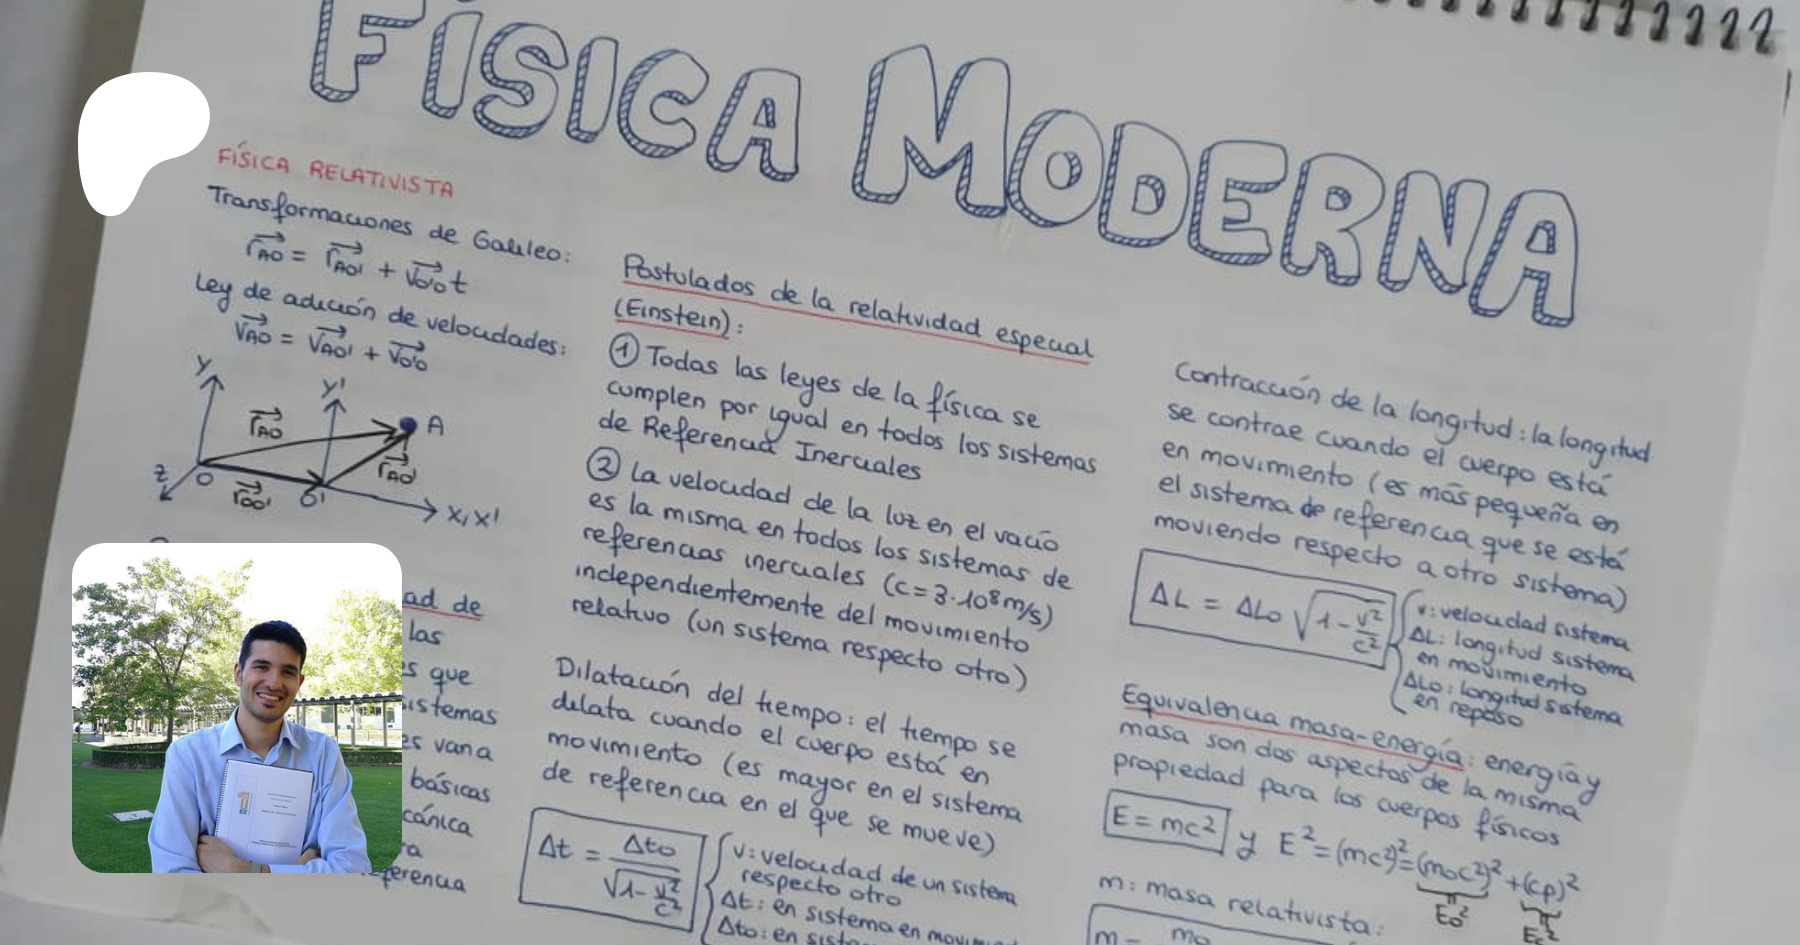 FÍSICA MODERNA
FÍSICA RELATIVISTA
Transformaciones de Galileo:
r⃗AO = r⃗AO' + v⃗O'O t
Ley de adición de velocidades:
v⃗AO = v⃗AO' + v⃗O'O
y
y'
A
r⃗AO
r⃗AO'
z
O
r⃗OO'
O'
x, x'
ad de
las
s que
istemas
es van a
básicas
cánica
ra
eferencia
Postulados de la relatividad especial
(Einstein):
① Todas las leyes de la física se
cumplen por igual en todos los sistemas
de Referencia Inerciales
② La velocidad de la luz en el vacío
es la misma en todos los sistemas de
referencias inerciales (c=3·10⁸m/s)
independientemente del movimiento
relativo (un sistema respecto otro)
Dilatación del tiempo: el tiempo se
dilata cuando el cuerpo está en
movimiento (es mayor en el sistema
de referencia en el que se mueve)
Δt = Δto / √1-v²/c²
v: velocidad de un sistema
respecto otro
Δt: en sistema en movim
Δto: en sistema
Contracción de la longitud: la longitud
se contrae cuando el cuerpo está
en movimiento (es más pequeña en
el sistema de referencia que se está
moviendo respecto a otro sistema)
ΔL = ΔLo √1-v²/c²
v: velocidad sistema
ΔL: longitud sistema
en movimiento
ΔLo: longitud sistema
en reposo
Equivalencia masa-energía: energía y
masa son dos aspectos de la misma
propiedad para los cuerpos físicos
E = mc² y E² = (mc²)² = (moc²)² + (cp)²
Eo²
m: masa relativista:
m = mo